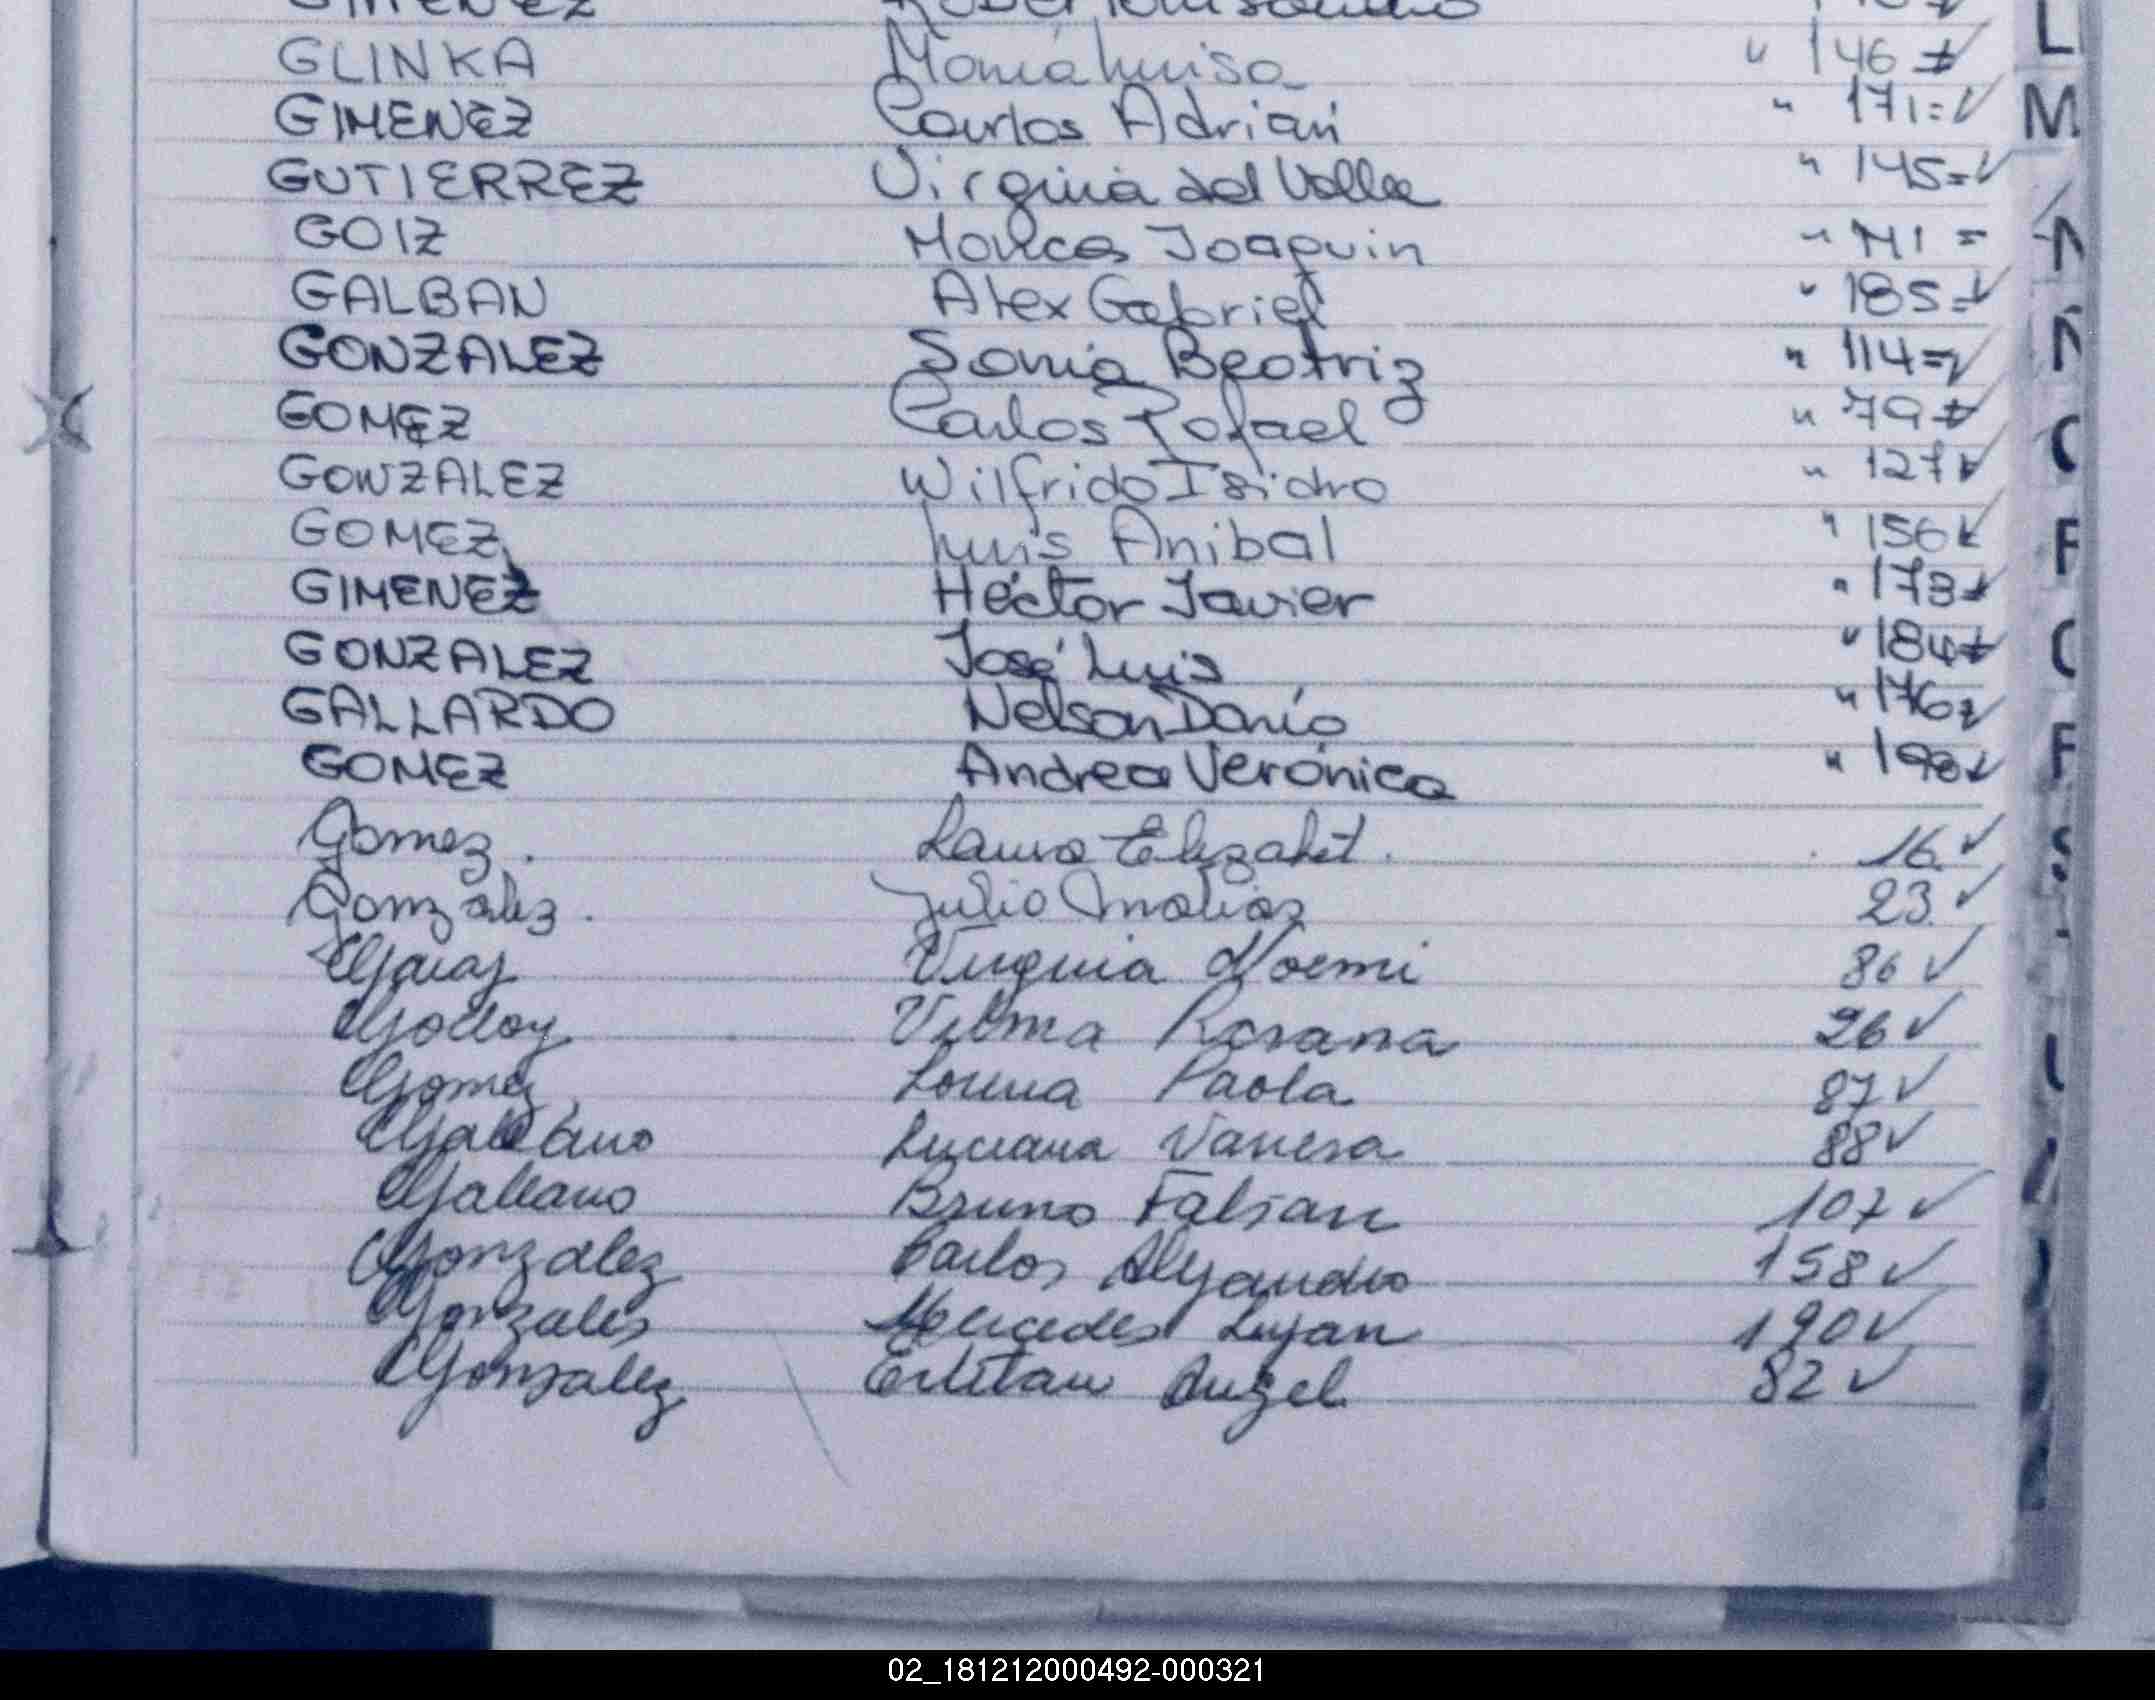 GIMENEZ
GLINKA María Luisa " 146 =
GIMENEZ Carlos Adrián " 171 =
GUTIERREZ Virginia del Valle " 145 =
GOIZ Marcos Joaquin " 141 =
GALBAN Alex Gabriel " 185 =
GONZALEZ Sonia Beatriz " 114 =
GOMEZ Carlos Rafael " 79 =
GONZALEZ Wilfrido Isidro " 127
GOMEZ Luis Anibal " 156
GIMENEZ Héctor Javier " 173
GONZALEZ José Luis " 184
GALLARDO Nelson Darío " 176
GOMEZ Andrea Verónica " 198
Gomez. Laura Elizabet. 16
Gonzalez. Julio 23
Garay Virginia Noemi 86
Godoy Vilma Rosana 26
Gomez Lorena Paola 87
Galeano Luciana Vanesa 88
Galeano Bruno Fabian 107
Gonzalez Carlos Alejandro 158
Gonzales Mercedes Lujan 190
Gonzalez Esteban Angel 82
L
M
F
F
S
02_181212000492-000321